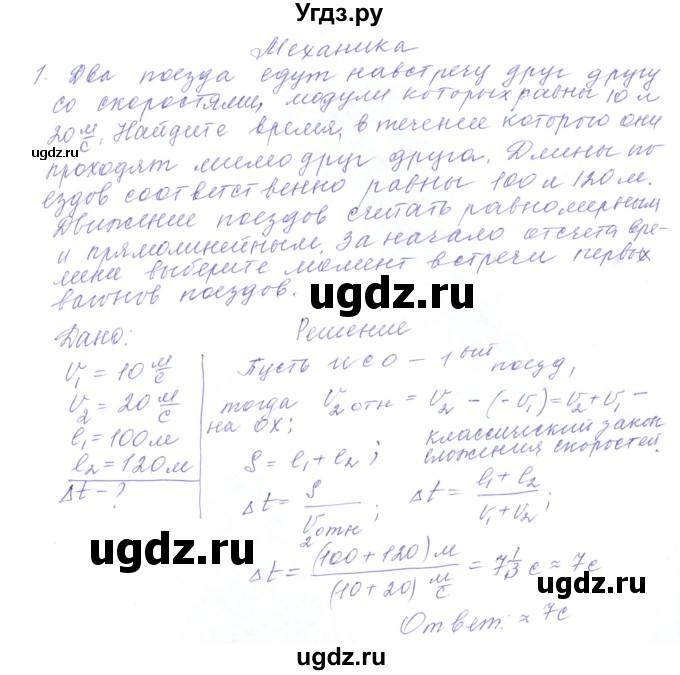 Угдз.ру
Механика
1. Два поезда едут навстречу друг другу
со скоростями, модули которых равны 10 и
20 м/с. Найдите время, в течение которого они
проходят мимо друг друга. Длины по-
ездов соответственно равны 100 и 120 м.
Движение поездов считать равномерным
и прямолинейным. За начало отсчета вре-
мени выберите момент встречи первых
вагонов поездов.
ugdz.ru
ugdz.ru
Дано: Решение
ugdz.ru
V₁ = 10 м/с
V₂ = 20 м/с
l₁ = 100 м
l₂ = 120 м
Δt - ?
Пусть ИСО – 1ый поезд,
тогда V₂отн = V₂ – (–V₁) = V₂ + V₁ –
на ОХ; классический закон
сложения скоростей.
S = l₁ + l₂;
Δt = S / V₂отн; Δt = (l₁ + l₂) / (V₁ + V₂);
ugdz.ru
ugdz.ru
Δt = (100 + 120) м / (10 + 20) м/с = 7 1/3 с ≈ 7 с
Ответ: ≈ 7 с
ugdz.ru
ugdz.ru